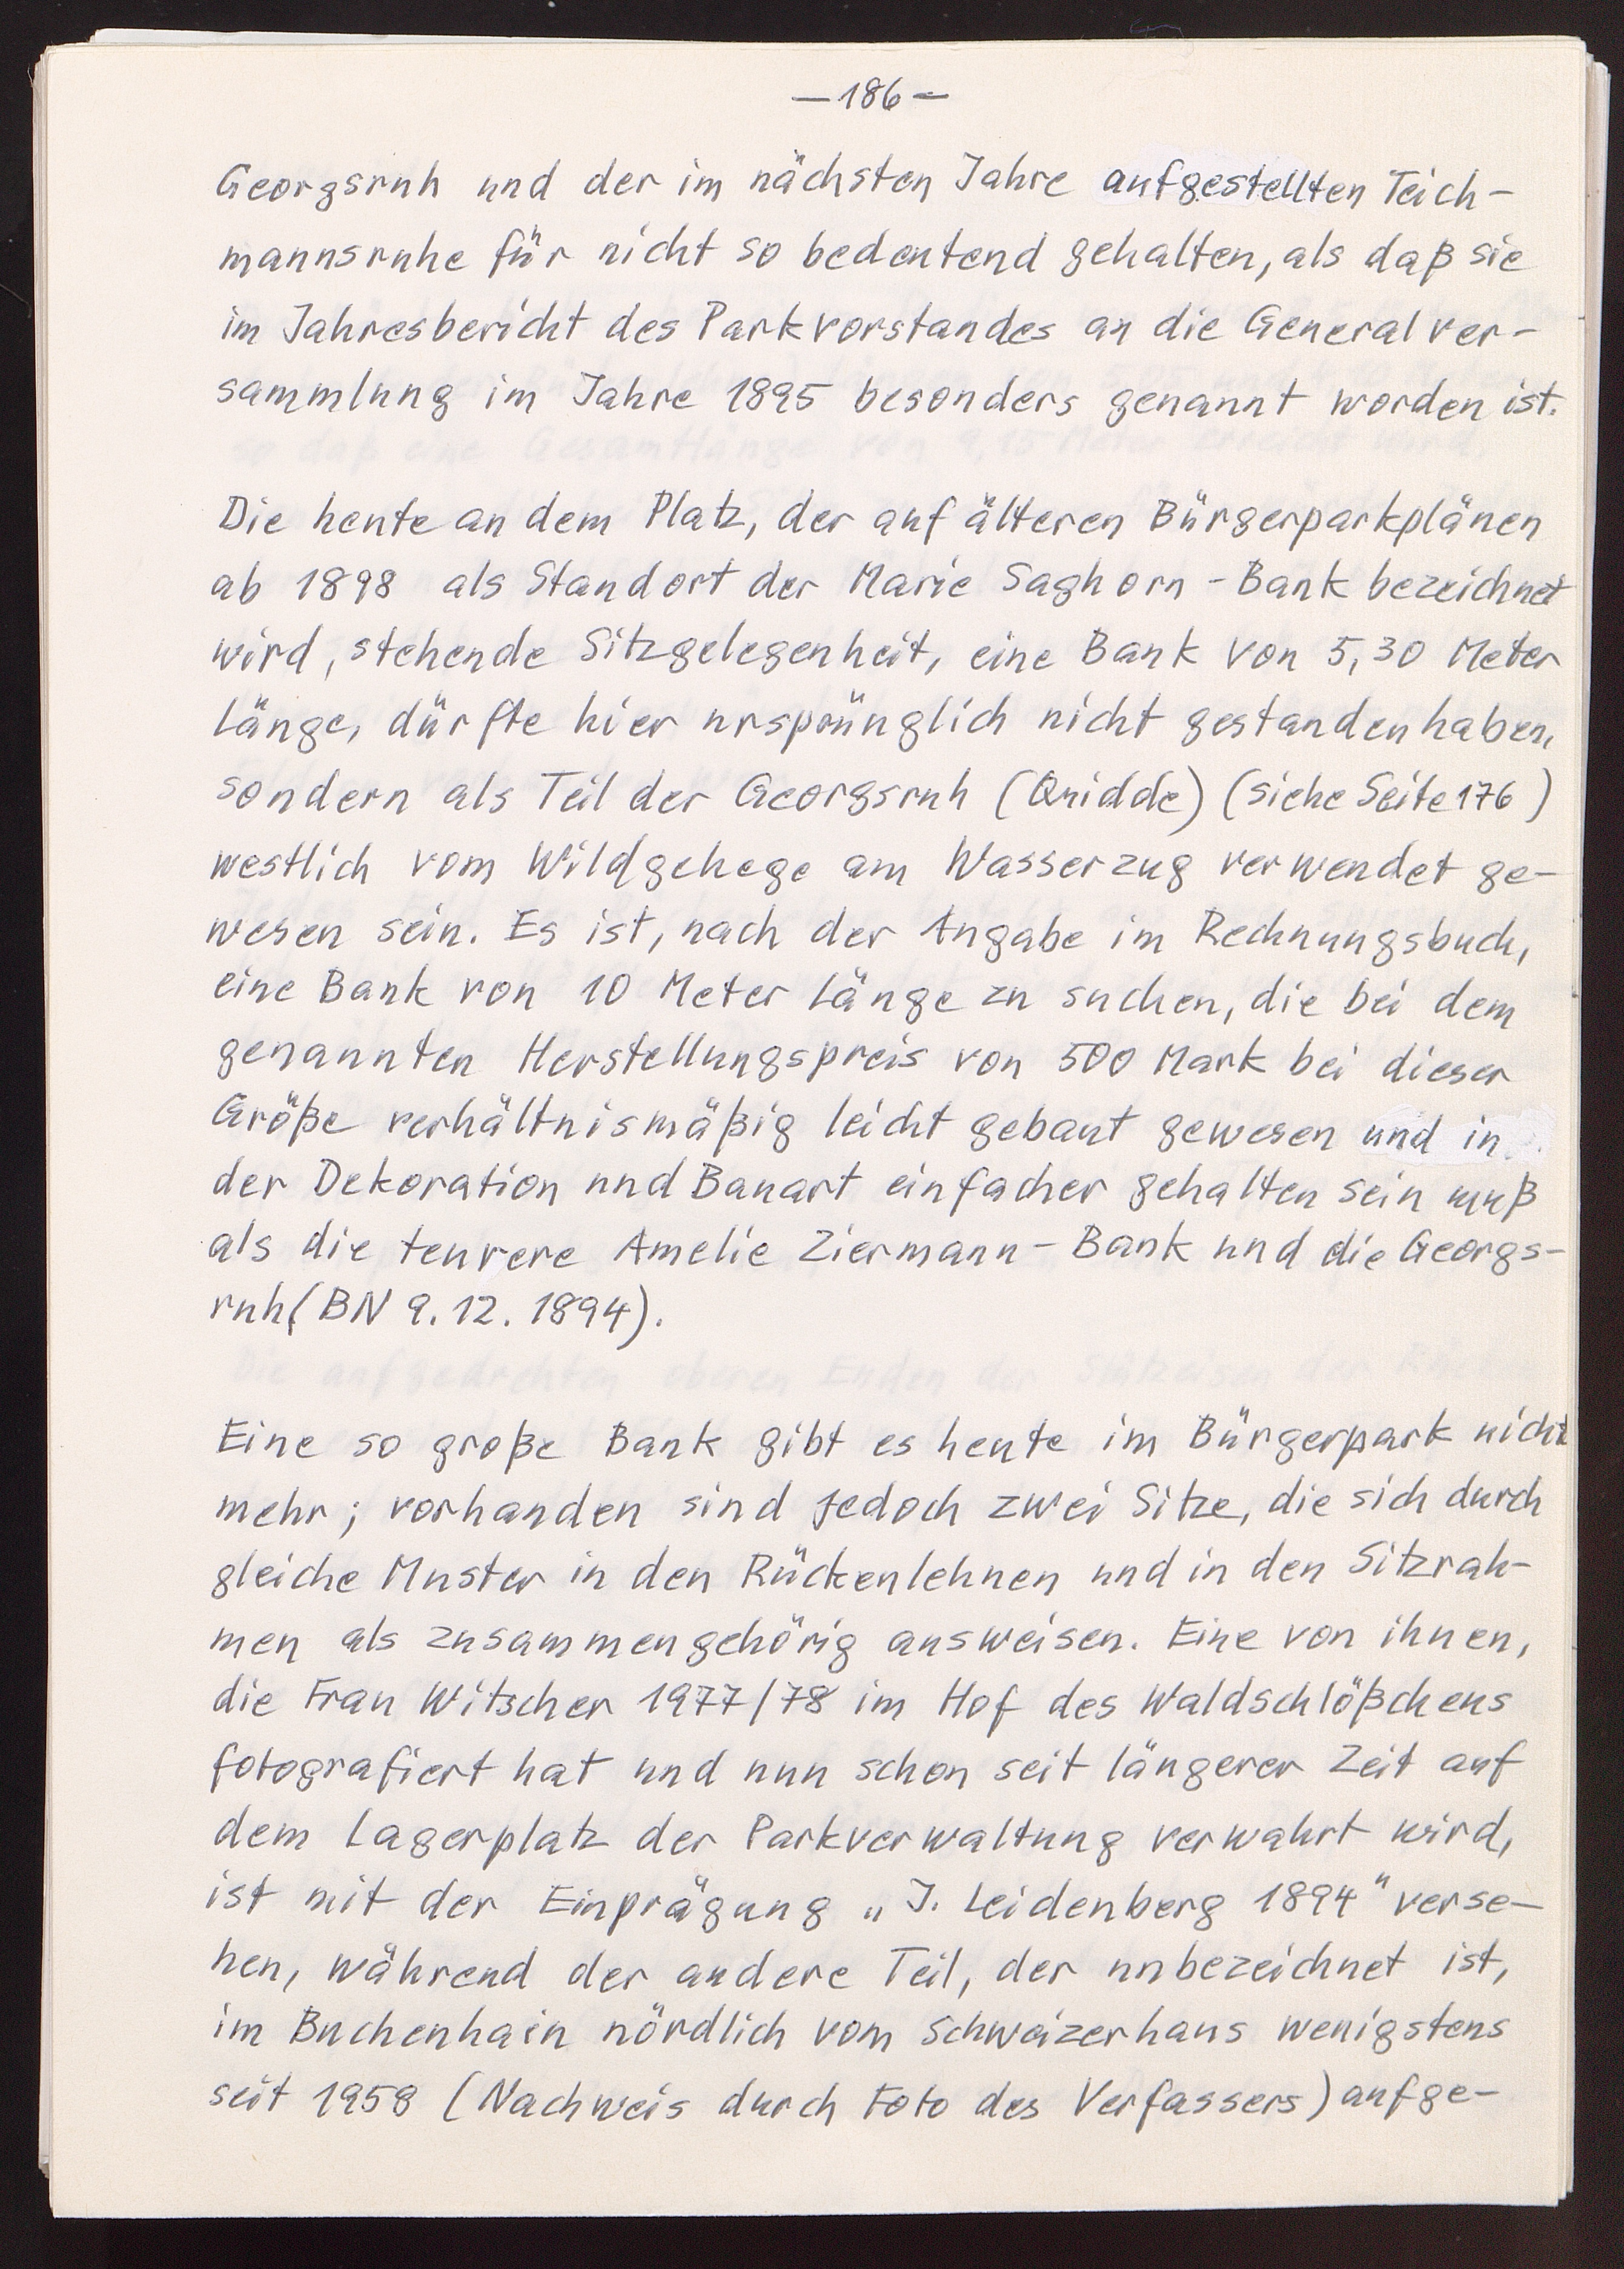 —186—
Georgsruh und der im nächsten Jahre aufgestellten Teich-
mannsruhe für nicht so bedeutend gehalten, als daß sie
im Jahresbericht des Parkvorstandes an die Generalver-
sammlung im Jahre 1895 besonders genannt worden ist.
Die heute an dem Platz, der auf älteren Bürgerparkplänen
ab 1898 als Standort der Marie Saghorn-Bank bezeichnet
wird, stehende Sitzgelegenheit, eine Bank von 5,30 Meter
Länge, dürfte hier ursprünglich nicht gestanden haben,
sondern als Teil der Georgsruh (Quidde) (siehe Seite 176)
westlich vom Wildgehege am Wasserzug verwendet ge-
wesen sein. Es ist, nach der Angabe im Rechnungsbuch,
eine Bank von 10 Meter Länge zu suchen, die bei dem
genannten Herstellungspreis von 500 Mark bei dieser
Größe verhältnismäßig leicht gebaut gewesen und in
der Dekoration und Bauart einfacher gehalten sein muß
als die teurere Amelie Ziermann-Bank und die Georgs-
ruh (BN 9.12.1894).
Eine so große Bank gibt es heute im Bürgerpark nicht
mehr; vorhanden sind jedoch zwei Sitze, die sich durch
gleiche Muster in den Rückenlehnen und in den Sitzrah-
men als zusammengehörig ausweisen. Eine von ihnen,
die Frau Witscher 1977/78 im Hof des Waldschlößchens
fotografiert hat und nun schon seit längerer Zeit auf
dem Lagerplatz der Parkverwaltung verwahrt wird,
ist mit der Einprägung „J. Leidenberg 1894" verse-
hen, während der andere Teil, der unbezeichnet ist,
im Buchenhain nördlich vom Schweizerhaus wenigstens
seit 1958 (Nachweis durch Foto des Verfassers) aufge-